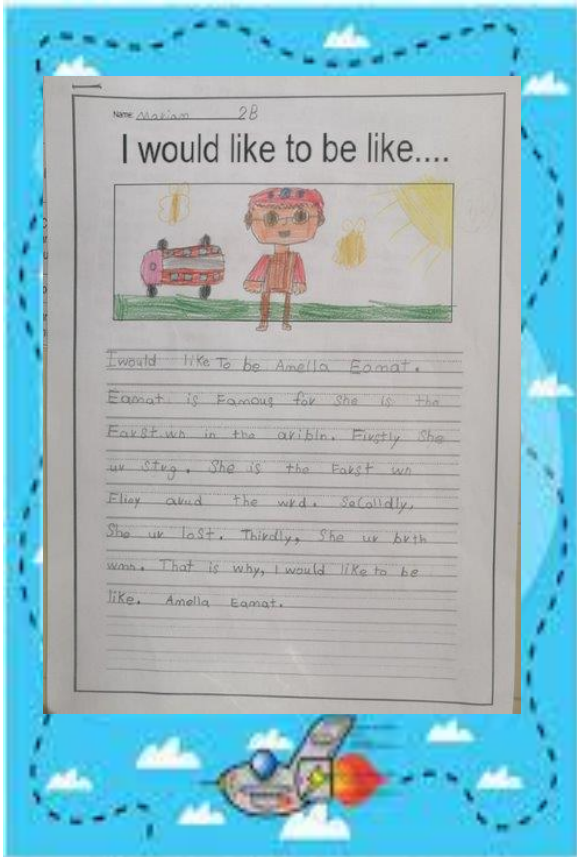 Name: Mariam 2B
I would like to be like....
I would like To be Amella Eamat.
Eamat is Famous for she is the
Farst wn in the aribln. Firstly She
ur Strg. She is the Farst wn
Fliey arud the wrd. Secolldly,
She ur lost. Thirdly, She ur brth
wmn. That is why, I would like to be
like. Amella Eamat.